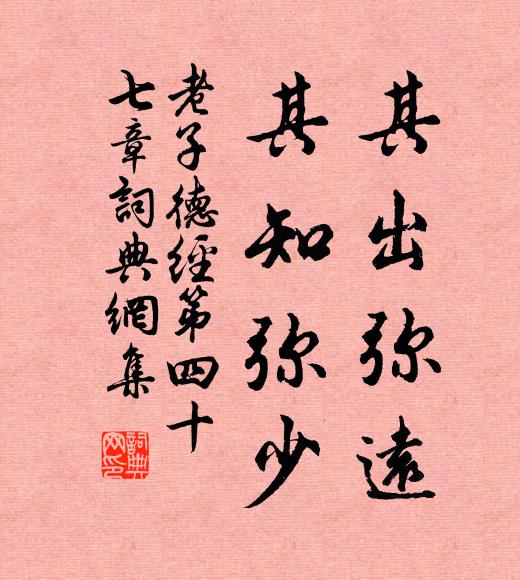 其出弥遠
其知弥少
老子德經第四十
七章詞典網集
詞典
网印